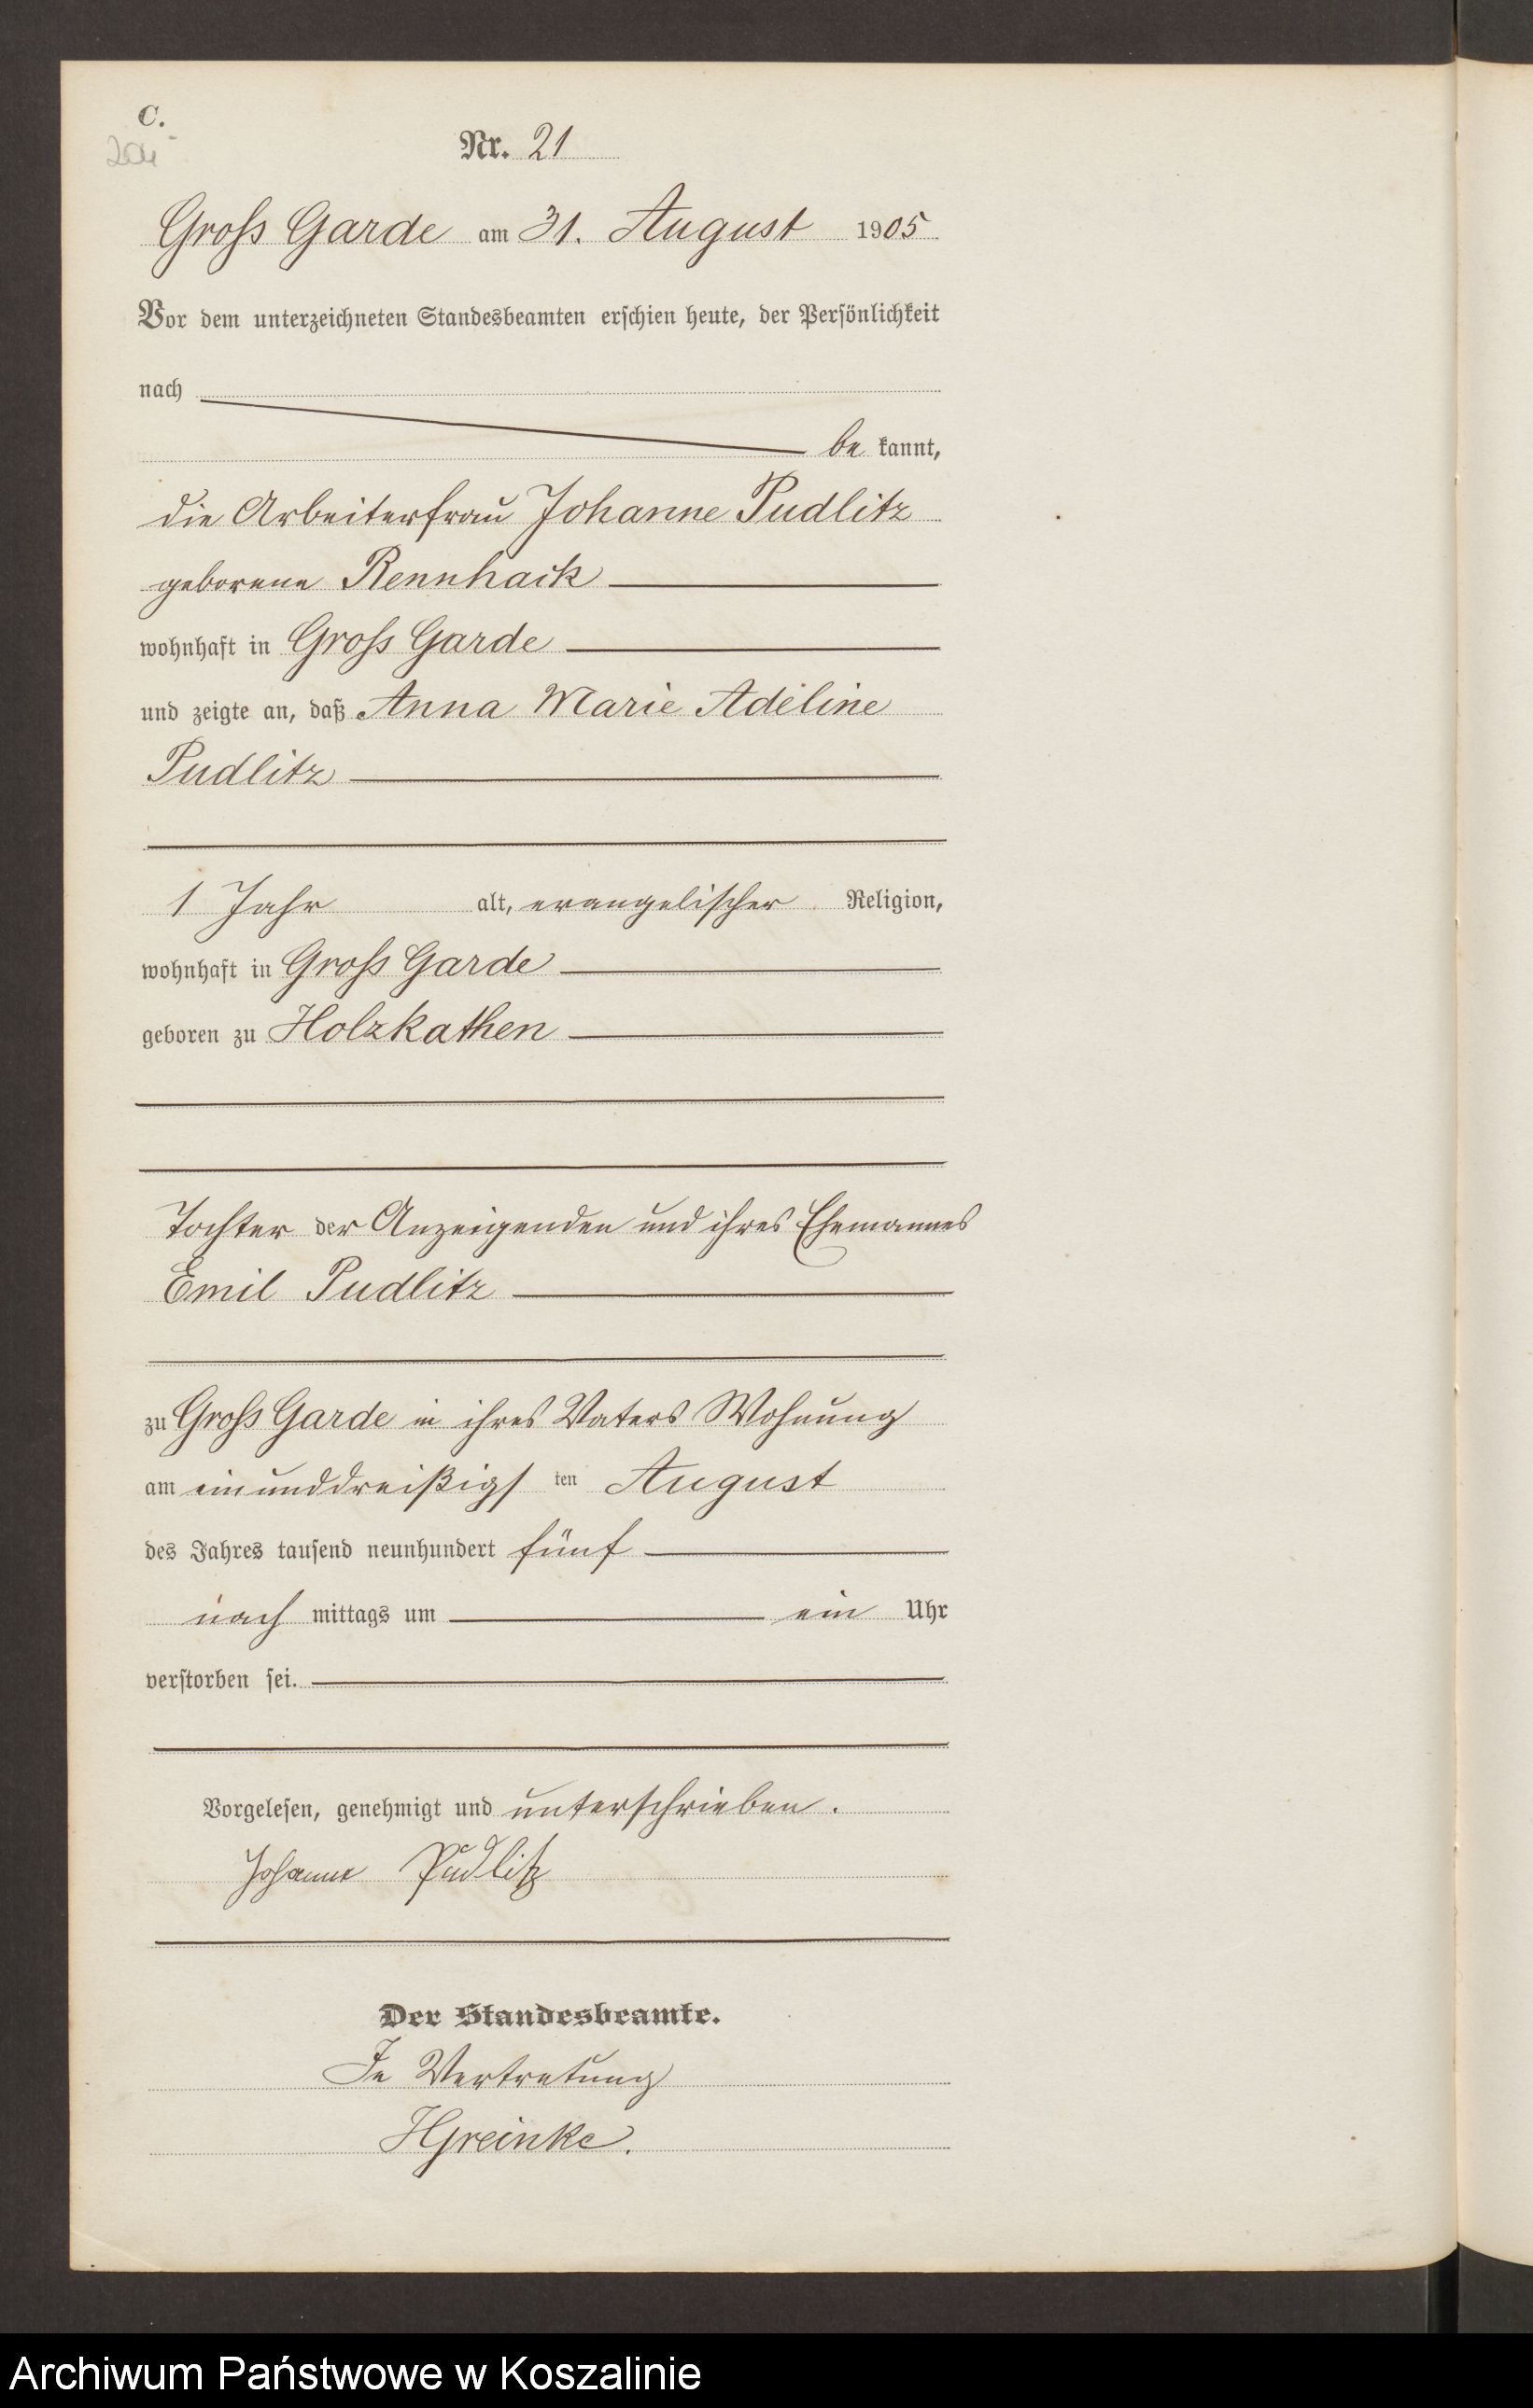 C.
Nr. 21
Gross Garde am 31. August 1905
Vor dem unterzeichneten Standesbeamten erschien heute, der Persönlichkeit
nach
be kannt,
die Arbeiterfrau Johanne Pudlitz
geborene Rennhack
wohnhaft in Gross Garde
und zeigte an, daß Anna Marie Adeline
Pudlitz
1 Jahr alt, evangelischer Religion,
wohnhaft in Gross Garde
geboren zu Holzkathen
Tochter der Anzeigenden und ihres Ehemannes
Emil Pudlitz
zu Gross Garde in ihres Vaters Wohnung
am einunddreißigs ten August
des Jahres tausend neunhundert fünf
nach mittags um ein Uhr
verstorben sei.
Vorgelesen, genehmigt und unterschrieben.
Johanne Pudlitz
Der Standesbeamte.
In Vertretung
HGreinke.
Archiwum Państwowe w Koszalinie